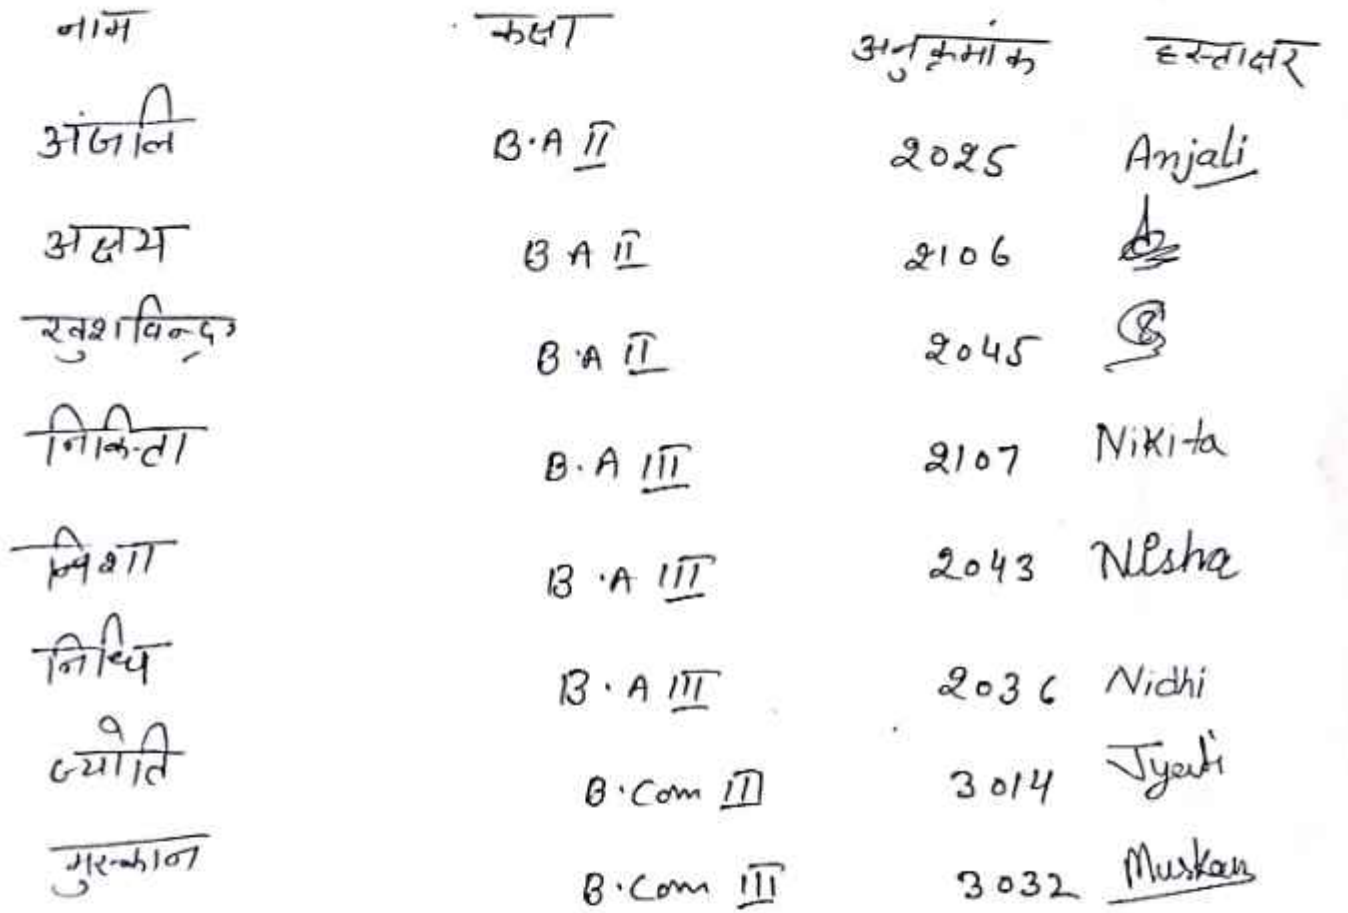 नाम कक्षा अनुक्रमांक हस्ताक्षर
अंजलि B.A II 2025 Anjali
अक्षय B A II 2106
खुशविन्द्र B.A II 2045
निकिता B.A III 2107 Nikita
निशा B.A III 2043 Nisha
निधि B.A III 2036 Nidhi
ज्योति B.Com II 3014 Jyoti
मुस्कान B.Com III 3032 Muskan